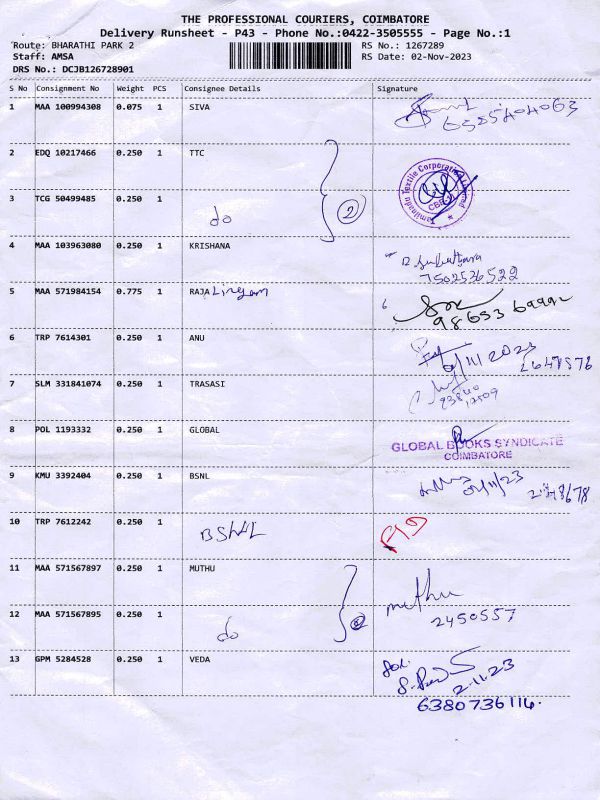 THE PROFESSIONAL COURIERS, COIMBATORE
Delivery Runsheet - P43 - Phone No.:0422-3505555 - Page No.:1
Route: BHARATHI PARK 2
Staff: AMSA
DRS No.: DCJB126728901
RS No.: 1267289
RS Date: 02-Nov-2023
S No Consignment No Weight PCS Consignee Details Signature
1 MAA 100994308 0.075 1 SIVA
2 EDQ 10217466 0.250 1 TTC
3 TCG 50499485 0.250 1 do 2
Tamilnadu Textile Corporation Limited
4 MAA 103963080 0.250 1 KRISHANA
7502536522
5 MAA 571984154 0.775 1 RAJA Lingam
6 TRP 7614301 0.250 1 ANU
7 SLM 331841074 0.250 1 TRASASI
8 POL 1193332 0.250 1 GLOBAL
GLOBAL BOOKS SYNDICATE
COIMBATORE
9 KMU 3392404 0.250 1 BSNL
10 TRP 7612242 0.250 1 BSNL
11 MAA 571567897 0.250 1 MUTHU muthu
2450557
12 MAA 571567895 0.250 1 do 2
13 GPM 5284528 0.250 1 VEDA
2-11-23
6380736116.